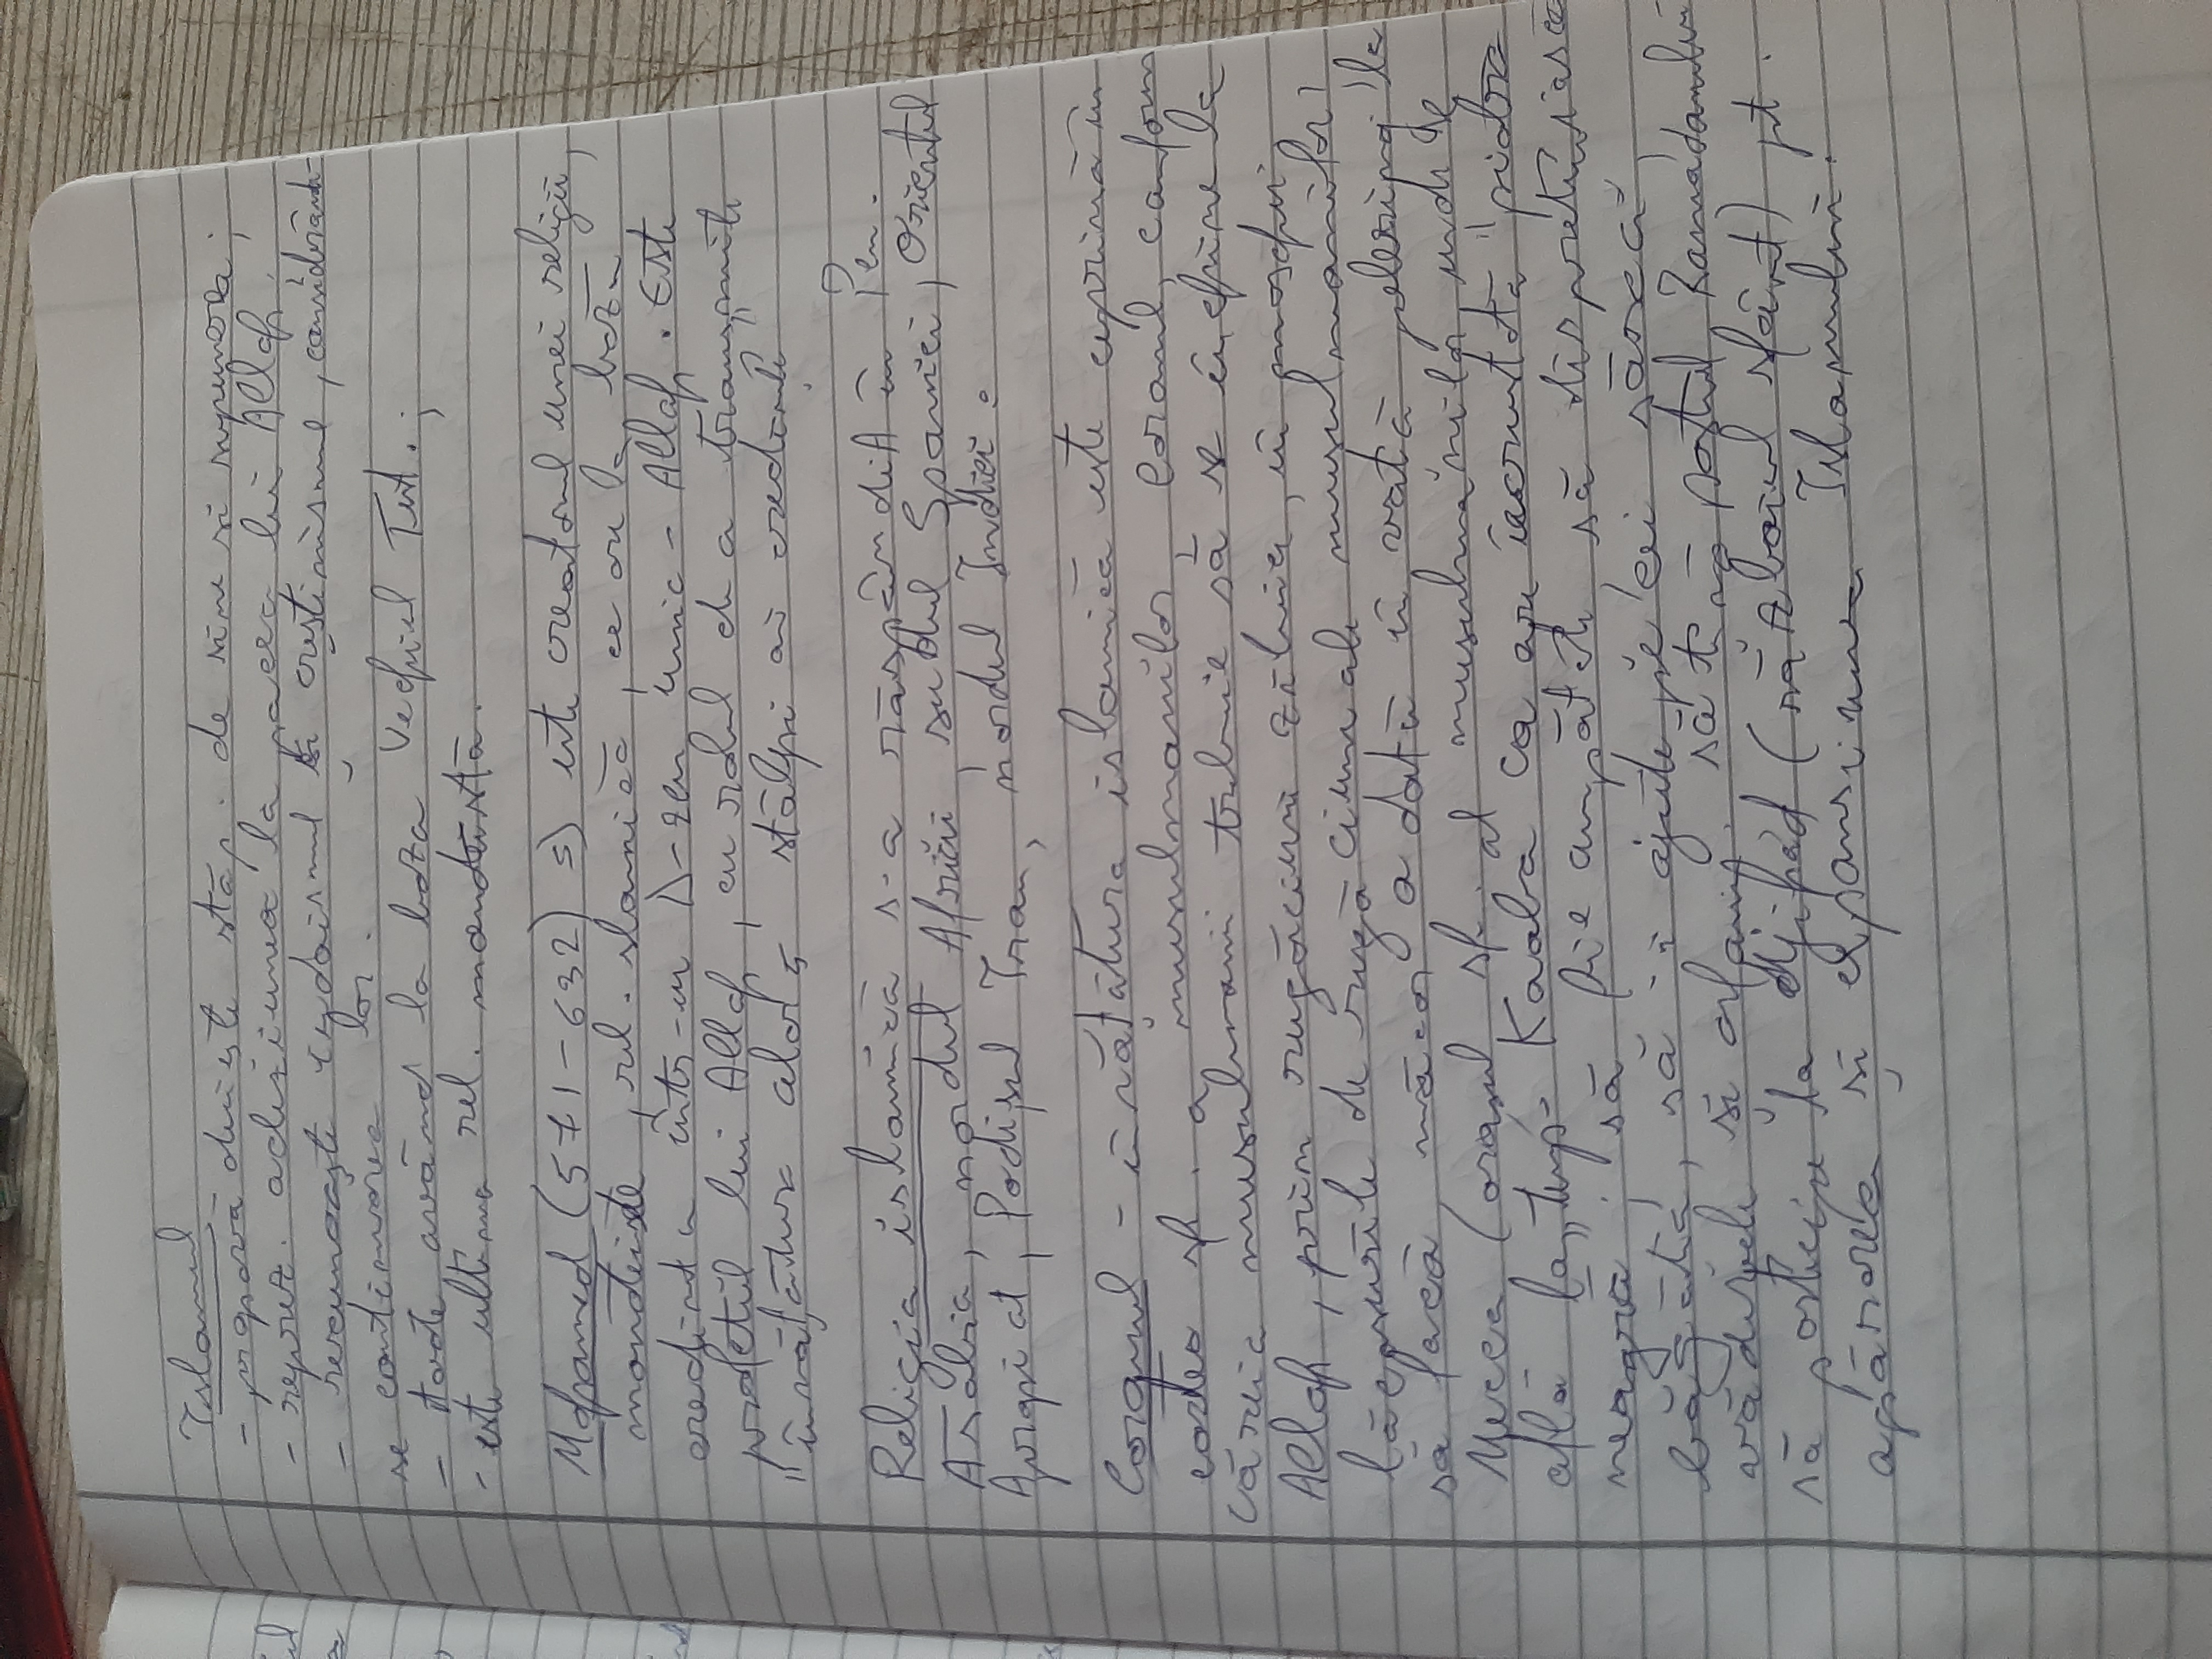 Islamul
- propovăduiește stăp. de sine și supunerea;
- repret. adeziunea la pacea lui Allah;
- recunoaște iudaismul și creștinismul, considerându-
se continuarea lor.
- toate având la baza Vechiul Test.;
- este ultima rel. monoteistă.
Mohamed (571-632) => este creatorul unei religii
monoteiste, rel. islamică, ce are la bază
credința într-un D-zeu unic - Allah. Este
profetul lui Allah, cu rolul de a transmite
"învățătura celor 5 stâlpi ai credinței
Religia islamică s-a răspândit în Pen.
Arabia, nordul Africii sudul Spaniei, Orientul
Apropiat, Podișul Iran, nordul Indiei.
Coranul - învățătura islamică este exprimă în
cartea sf. a musulmanilor Coranul, conform
căreia musulmanii trebuie să se închine la
Allah, prin rugăciuni zilnice, în moschei
lăcașurile de rugăciune ale musulmanilor,
să facă măcar o dată în viață pelerinaj la
Mecca (orașul sfânt al musulmanilor unde se
află la templ Kaaba ca are încrustată "piatra
neagră; să fie cumpătați să disprețuiască
bogăția, să-i ajute pe cei săraci,
văduvele și orfanii, să țină postul Ramadanului
să participe la Djihad (războiul sfânt) pt.
apărarea și expansiunea Islamului.